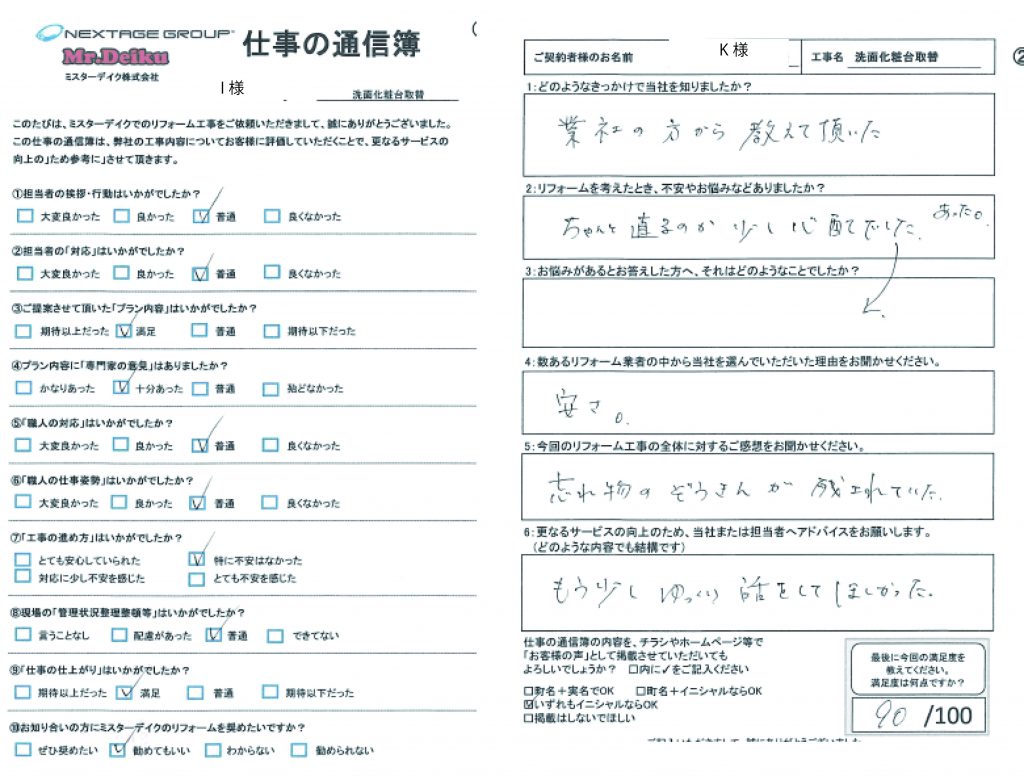 NEXTAGE GROUP
仕事の通信簿
Mr.Deiku
ミスターデイク株式会社
I 様
洗面化粧台取替
このたびは、ミスターデイクでのリフォーム工事をご依頼いただきまして、誠にありがとうございました。
この仕事の通信簿は、弊社の工事内容についてお客様に評価していただくことで、更なるサービスの
向上の」ため参考に」させて頂きます。
①担当者の挨拶・行動はいかがでしたか?
□ 大変良かった □ 良かった ☑ 普通 □ 良くなかった
②担当者の「対応」はいかがでしたか?
□ 大変良かった □ 良かった ☑ 普通 □ 良くなかった
③ご提案させて頂いた「プラン内容」はいかがでしたか?
□ 期待以上だった ☑ 満足 □ 普通 □ 期待以下だった
④プラン内容に「専門家の意見」はありましたか?
□ かなりあった ☑ 十分あった □ 普通 □ 殆どなかった
⑤「職人の対応」はいかがでしたか?
□ 大変良かった □ 良かった ☑ 普通 □ 良くなかった
⑥「職人の仕事姿勢」はいかがでしたか?
□ 大変良かった □ 良かった ☑ 普通 □ 良くなかった
⑦「工事の進め方」はいかがでしたか?
□ とても安心していられた ☑ 特に不安はなかった
□ 対応に少し不安を感じた □ とても不安を感じた
⑧現場の「管理状況整理整頓等」はいかがでしたか?
□ 言うことなし □ 配慮があった ☑ 普通 □ できてない
⑨「仕事の仕上がり」はいかがでしたか?
□ 期待以上だった ☑ 満足 □ 普通 □ 期待以下だった
⑩お知り合いの方にミスターデイクのリフォームを奨めたいですか?
□ ぜひ奨めたい ☑ 勧めてもいい □ わからない □ 勧められない
ご契約者様のお名前 K 様 工事名 洗面化粧台取替
②
1:どのようなきっかけで当社を知りましたか?
業社の方から教えて頂いた
2:リフォームを考えたとき、不安やお悩みなどありましたか?
あった。
ちゃんと直るのか少し心配でした。
3:お悩みがあるとお答えした方へ、それはどのようなことでしたか?
4:数あるリフォーム業者の中から当社を選んでいただいた理由をお聞かせください。
安さ。
5:今回のリフォーム工事の全体に対するご感想をお聞かせください。
忘れ物のぞうきんが残されていた。
6:更なるサービスの向上のため、当社または担当者へアドバイスをお願いします。
(どのような内容でも結構です)
もう少しゆっくり話をしてほしかった。
仕事の通信簿の内容を、チラシやホームページ等で
「お客様の声」として掲載させていただいても
よろしいでしょうか? □内に✓をご記入ください
□町名+実名でOK □町名+イニシャルならOK
☑いずれもイニシャルならOK
□掲載はしないでほしい
最後に今回の満足度を
教えてください。
満足度は何点ですか?
90 /100